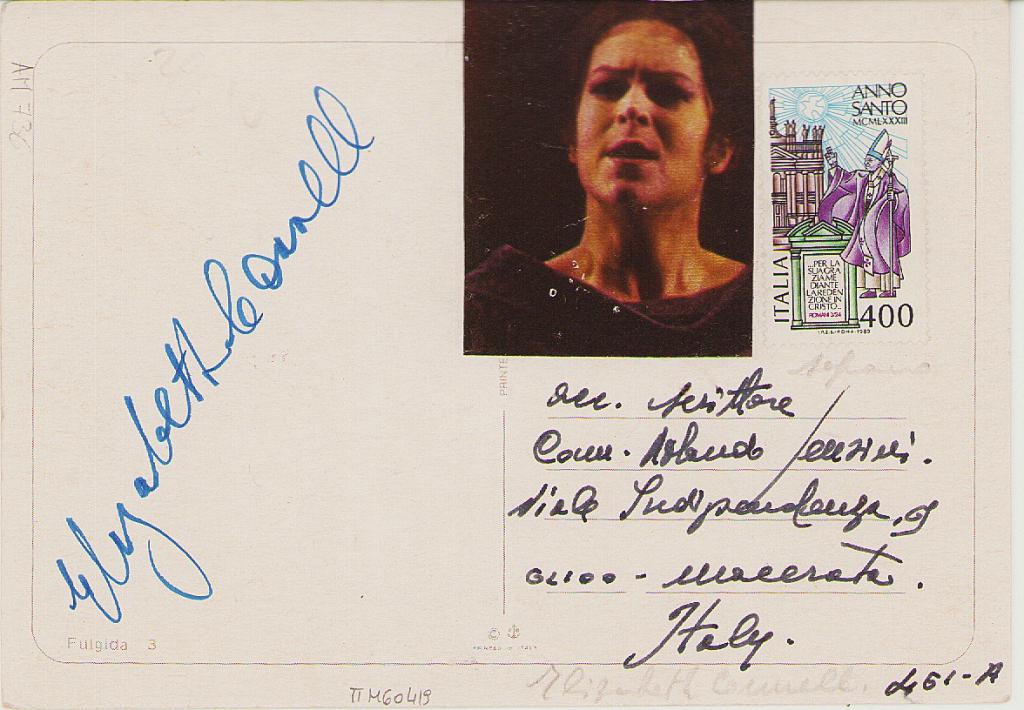 AM 736
Elizabeth Connell
ANNO
SANTO
MCMLXXXIII
ITALIA
...PER LA
SUA GRA
ZIA ME
DIANTE
LA REDEN
ZIONE IN
CRISTO...
ROMANI 3/24
400
I.P.Z.S.-ROMA-1983
soprano
scrittore
Comm. Rolando
Viale Indipendenza, 9
62100 - Macerata.
Italy.
Fulgida 3
©
PRINTED IN ITALY
PRINTE
Elizabeth Connell.
461-A
TIM60419